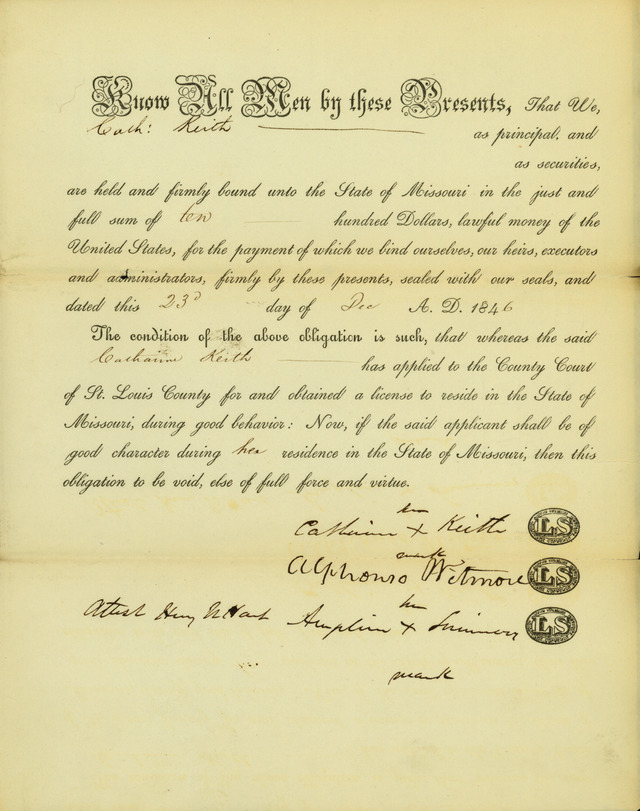 Know All Men by these Presents, That We,
Cath: Keith as principal, and
as securities,
are held and firmly bound unto the State of Missouri in the just and
full sum of ten hundred Dollars, lawful money of the
United States, for the payment of which we bind ourselves, our heirs, executors
and administrators, firmly by these presents, sealed with our seals, and
dated this 23d day of Dec A. D. 1846
The condition of the above obligation is such, that whereas the said
Catharine Keith has applied to the County Court
of St. Louis County for and obtained a license to reside in the State of
Missouri, during good behavior: Now, if the said applicant shall be of
good character during her residence in the State of Missouri, then this
obligation to be void, else of full force and virtue.
her
Catharine + Keith LS
mark
Alphonso Wetmore LS
her
Attest Henry + LS
mark